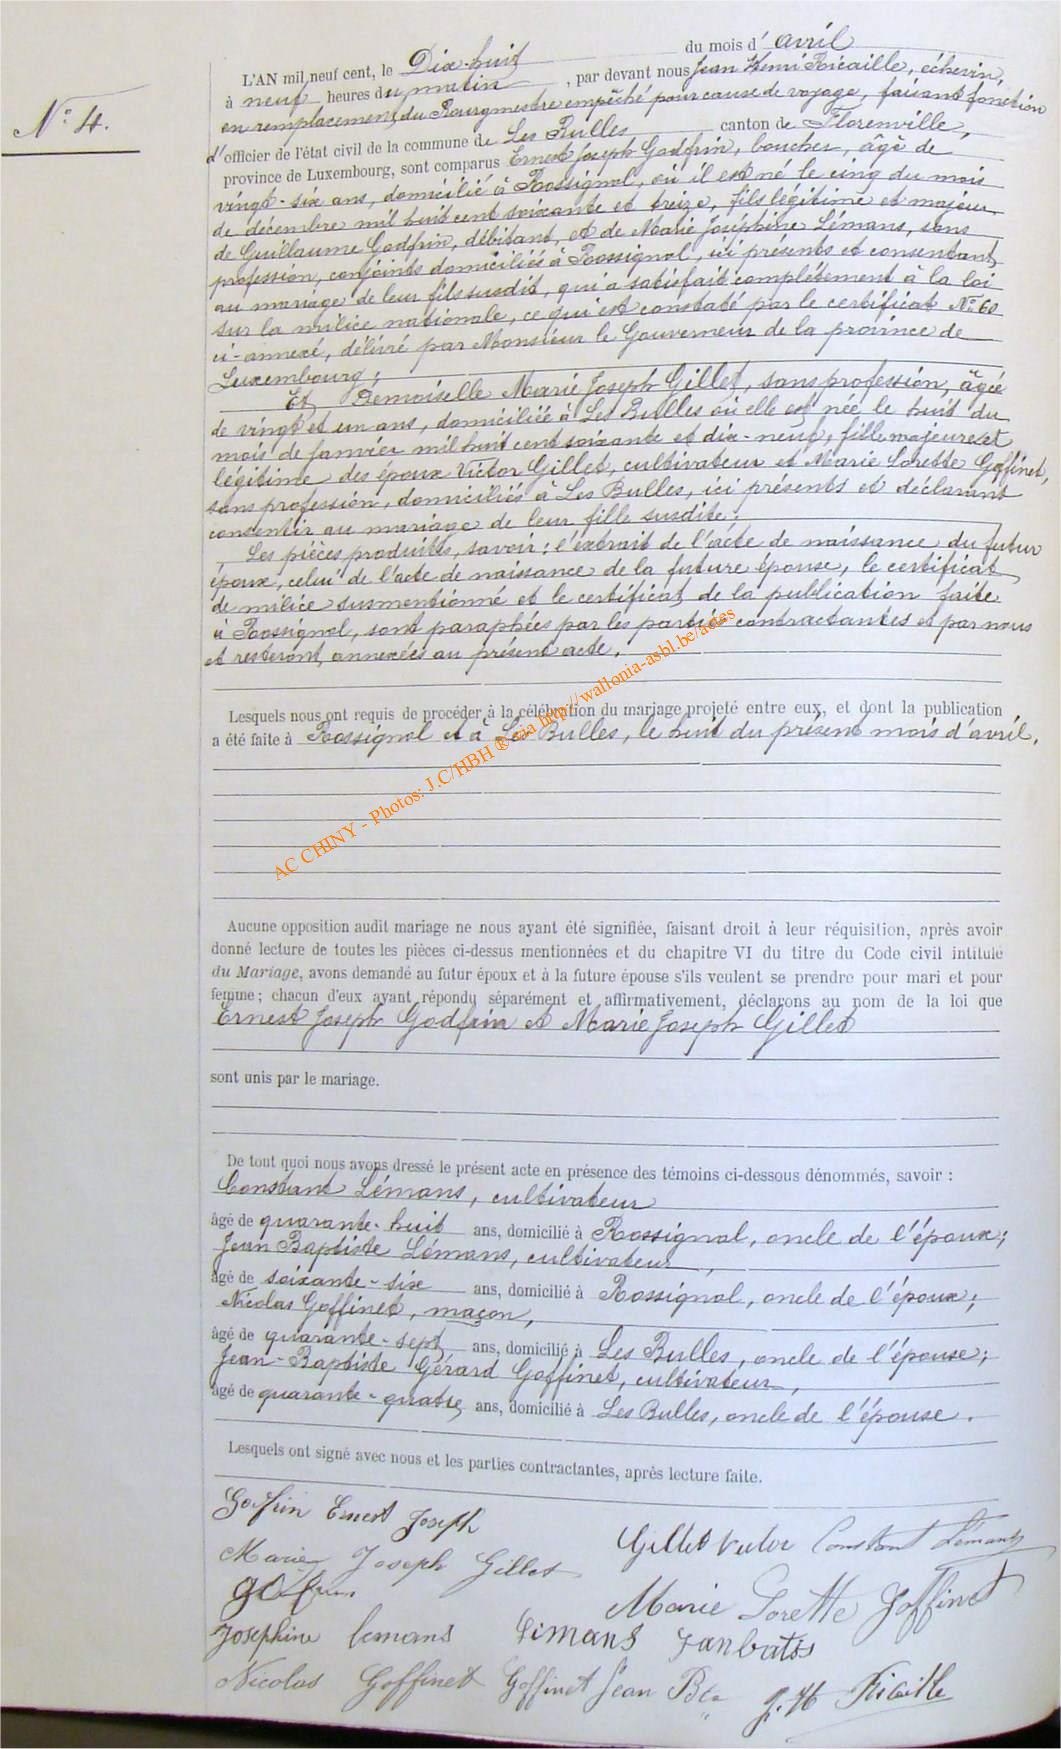 N° 4.
L'AN mil neuf cent, le Dix-huit du mois d'avril
à neuf heures du matin, par devant nous Jean Henri Ricaille, échevin,
en remplacement du Bourgmestre empêché pour cause de voyage, faisant fonction
d'officier de l'état civil de la commune de Les Bulles canton de Florenville,
province de Luxembourg, sont comparus Ernest Joseph Godfrin, boucher, âgé de
vingt-six ans, domicilié à Rossignol, où il est né le cinq du mois
de décembre mil huit cent soixante et treize, fils légitime et majeur
de Guillaume Godfrin, débitant, et de Marie Joséphine Lémans, sans
profession, conjoints domiciliés à Rossignol, ici présents et consentant
au mariage de leur fils susdit, qui a satisfait complètement à la loi
sur la milice nationale, ce qui est constaté par le certificat N° 60
ci-annexé, délivré par Monsieur le Gouverneur de la province de
Luxembourg;
Et Demoiselle Marie Joseph Gillet, sans profession, âgée
de vingt et un ans, domiciliée à Les Bulles où elle est née le huit du
mois de janvier mil huit cent soixante et dix-neuf, fille majeure et
légitime des époux Victor Gillet, cultivateur et Marie Lorette Goffinet,
sans profession, domiciliés à Les Bulles, ici présents et déclarant
consentir au mariage de leur fille susdite;
Les pièces produites, savoir: l'extrait de l'acte de naissance du futur
époux, celui de l'acte de naissance de la future épouse, le certificat
de milice susmentionné et le certificat de la publication faite
à Rossignol, sont paraphées par les parties contractantes et par nous
et resteront annexées au présent acte.
Lesquels nous ont requis de procéder à la célébration du mariage projeté entre eux, et dont la publication
a été faite à Rossignol et à Les Bulles, le huit du présent mois d'avril.
AC CHINY - Photos: J.C/HBH ® via http://wallonia-asbl.be/actes
Aucune opposition audit mariage ne nous ayant été signifiée, faisant droit à leur réquisition, après avoir
donné lecture de toutes les pièces ci-dessus mentionnées et du chapitre VI du titre du Code civil intitulé
du Mariage, avons demandé au futur époux et à la future épouse s'ils veulent se prendre pour mari et pour
femme; chacun d'eux ayant répondu séparément et affirmativement, déclarons au nom de la loi que
Ernest Joseph Godfrin et Marie Joseph Gillet
sont unis par le mariage.
De tout quoi nous avons dressé le présent acte en présence des témoins ci-dessous dénommés, savoir :
Constant Lémans, cultivateur
âgé de quarante-huit ans, domicilié à Rossignol, oncle de l'époux;
Jean Baptiste Lémans, cultivateur,
âgé de soixante-six ans, domicilié à Rossignol, oncle de l'époux;
Nicolas Goffinet, maçon,
âgé de quarante-sept ans, domicilié à Les Bulles, oncle de l'épouse;
Jean-Baptiste Gérard Goffinet, cultivateur,
âgé de quarante-quatre ans, domicilié à Les Bulles, oncle de l'épouse.
Lesquels ont signé avec nous et les parties contractantes, après lecture faite.
Godfrin Ernest Joseph
Gillet Victor Constant Lémans
Marie Joseph Gillet
Marie Lorette Goffinet
Josephine lemans Lemans
Nicolas Goffinet Goffinet Jean Bte J. H Ricaille